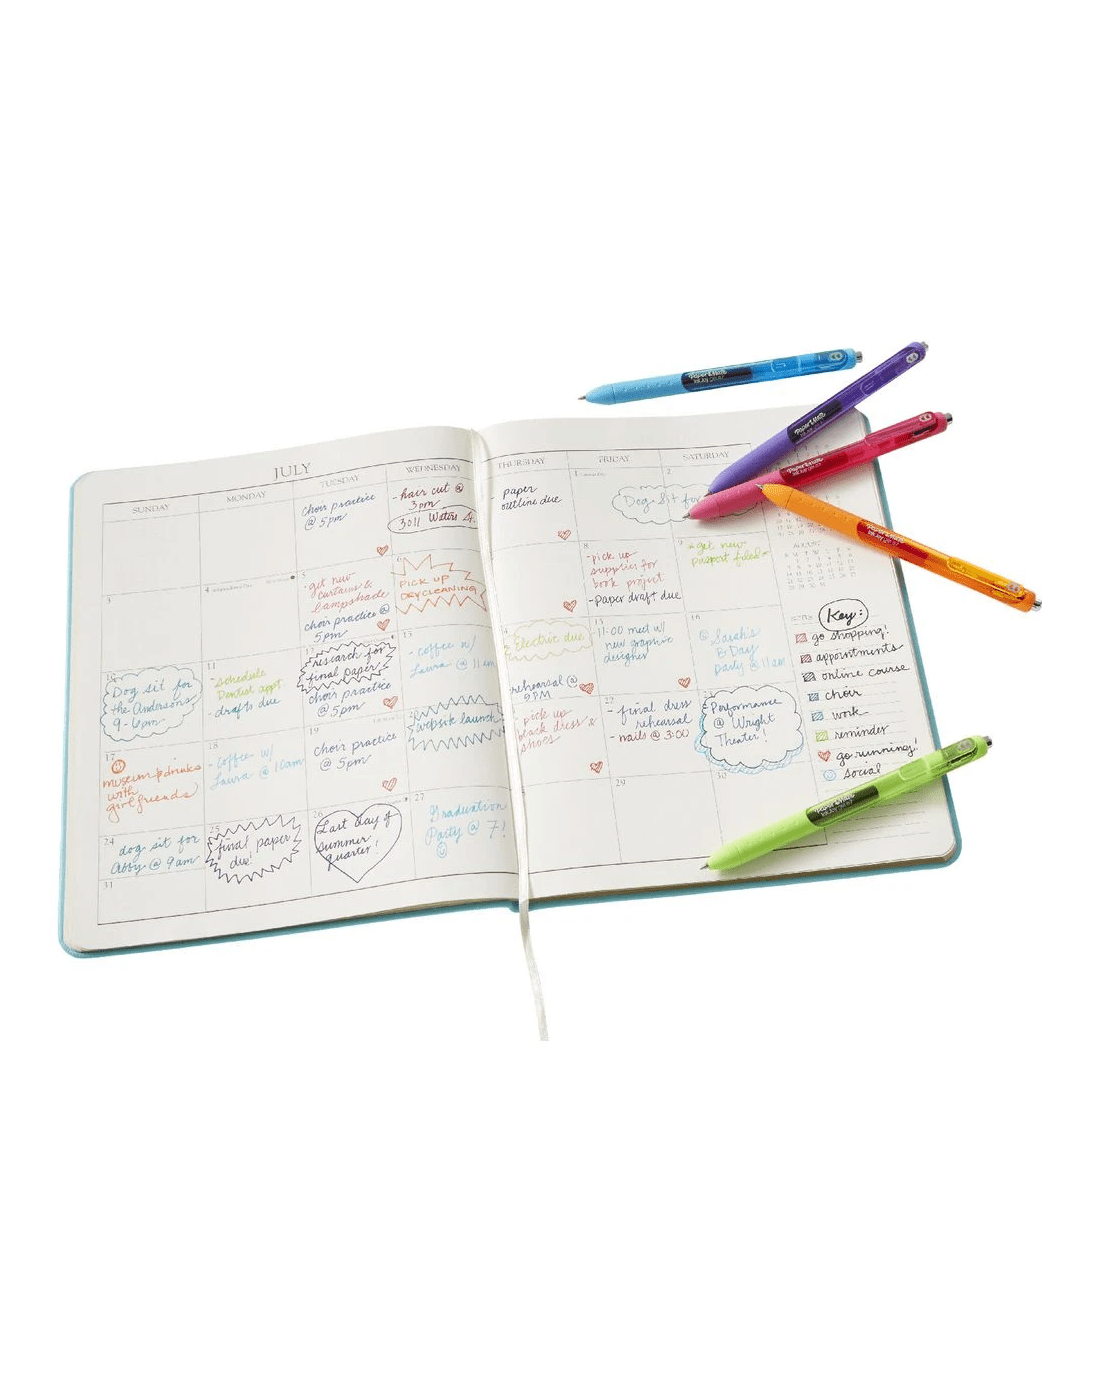 JULY
SUNDAY
MONDAY
TUESDAY
WEDNESDAY
THURSDAY
FRIDAY
SATURDAY
choir practice
@ 5pm
-hair cut @
3pm
3011 Waters
-paper
outline due
1
2
Dog sit for
3
4
5
-get new
curtains &
lampshade
choir practice @
5pm
6
PICK UP
DRYCLEANING
8
-pick up
supplies for
book project
-paper draft due
9
get new
passport filled
10
Dog sit for
the Andersons
9-6pm
11
-schedule
Dentist appt
-drafts due
12
research for
final paper!
choir practice
@ 5pm
13
-coffee w/
Laura @ 11am
14
Electric due
rehearsal @
9PM
15
11:00 meet w/
new graphic
designer
16
@ Sarah's
B Day
party @ 11am
17
museum & drinks
with
girlfriends
18
-coffee w/
Laura @ 10am
19
choir practice
@ 5pm
20
website launch
pick up
black dress &
shoes
22
-final dress
rehearsal
-nails @ 3:00
23
Performance
@ Wright
Theater!
24
dog sit for
Abby @ 9am
25
final paper
due!
26
Last day of
summer
quarter!
27
Graduation
Party @ 7!
29
30
31
AUGUST
NOTES
Key:
go shopping!
appointments
online course
choir
work
reminder
go running!
social
PaperMate
INKJOY GEL 0.7
PaperMate
INKJOY GEL 0.7
PaperMate
INKJOY GEL 0.7
PaperMate
INKJOY GEL 0.7
PaperMate
INKJOY GEL 0.7